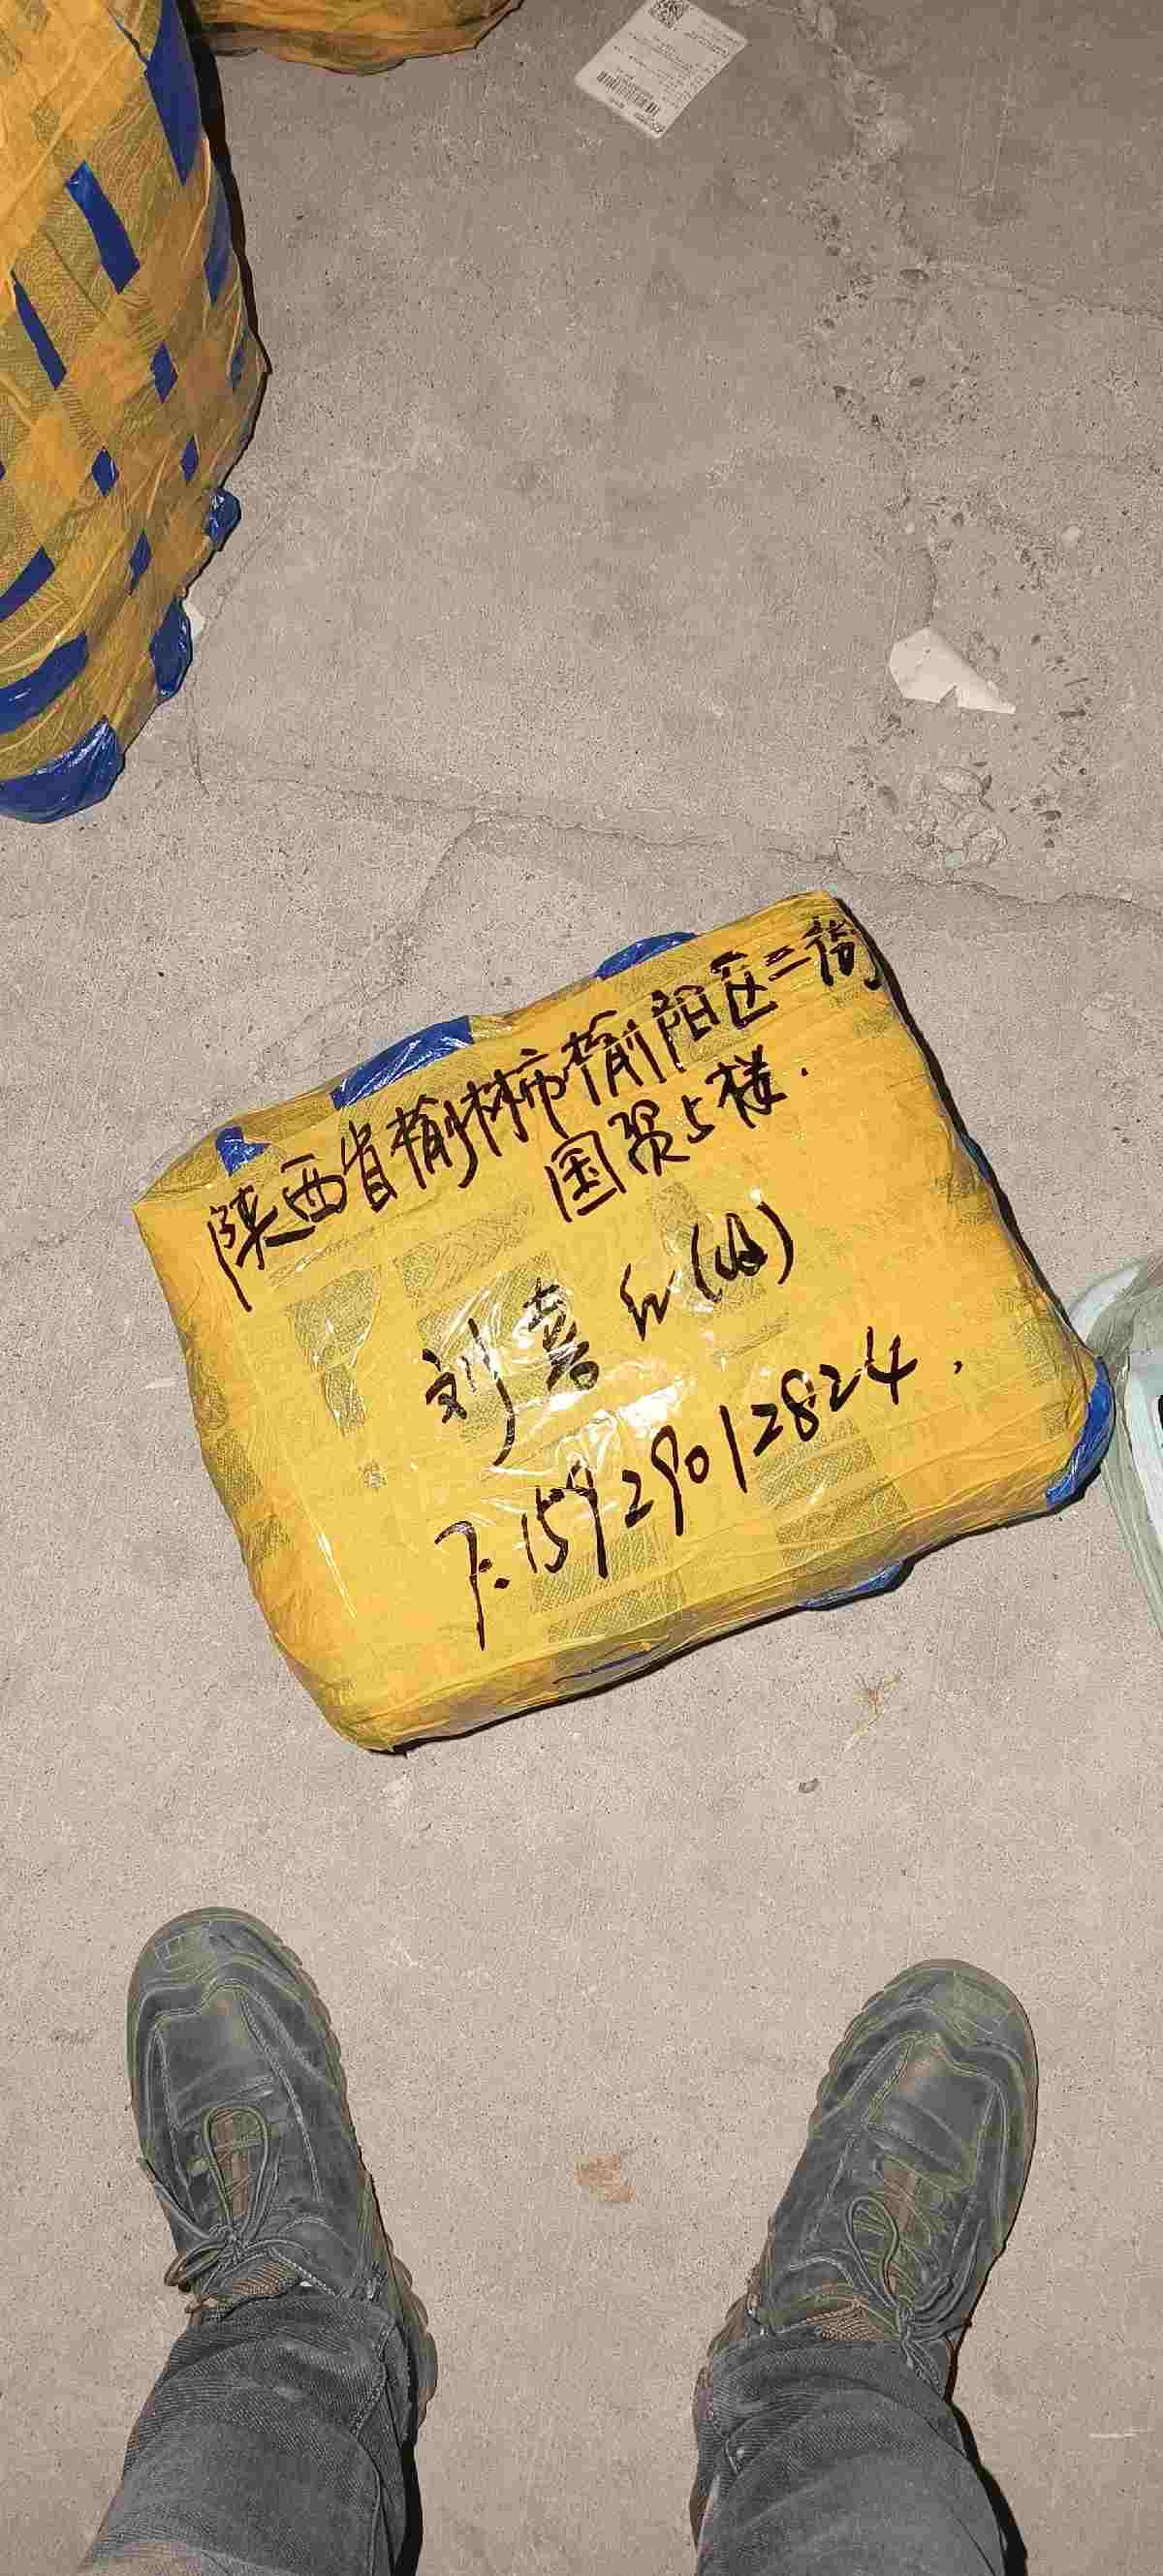 陕西省榆林市榆阳区二街
国贸5楼.
刘喜红(收)
7:15929012824.